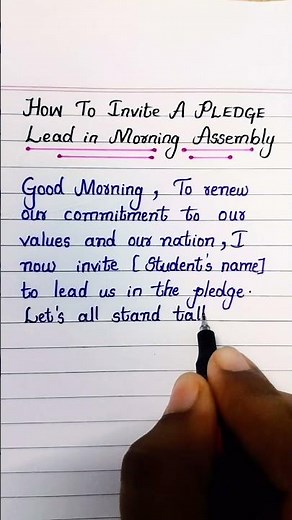 How To Invite A PLEDGE
Lead in Morning Assembly
Good Morning, To renew
our commitment to our
values and our nation, I
now invite [Student's name]
to lead us in the pledge.
Let's all stand tall